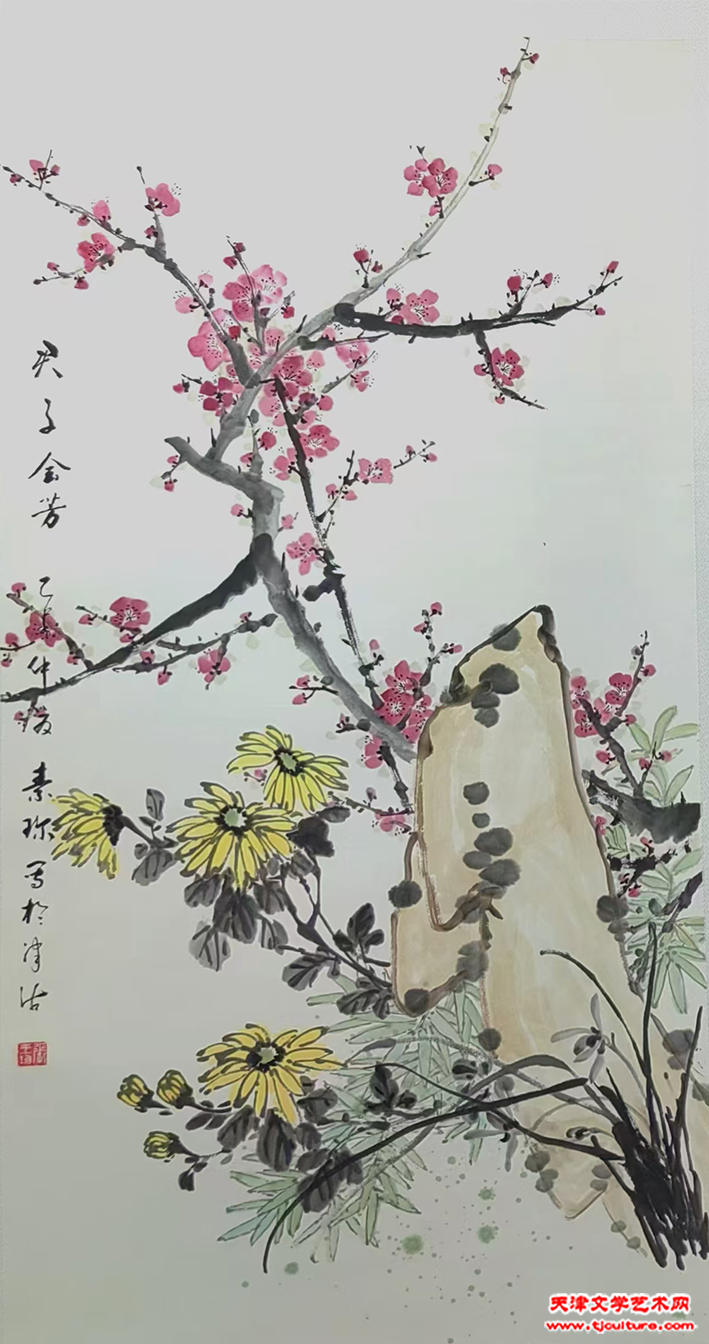 君子全芳 乙未仲夏 素珍写於津沽
天津文学艺术网
www.tjculture.com